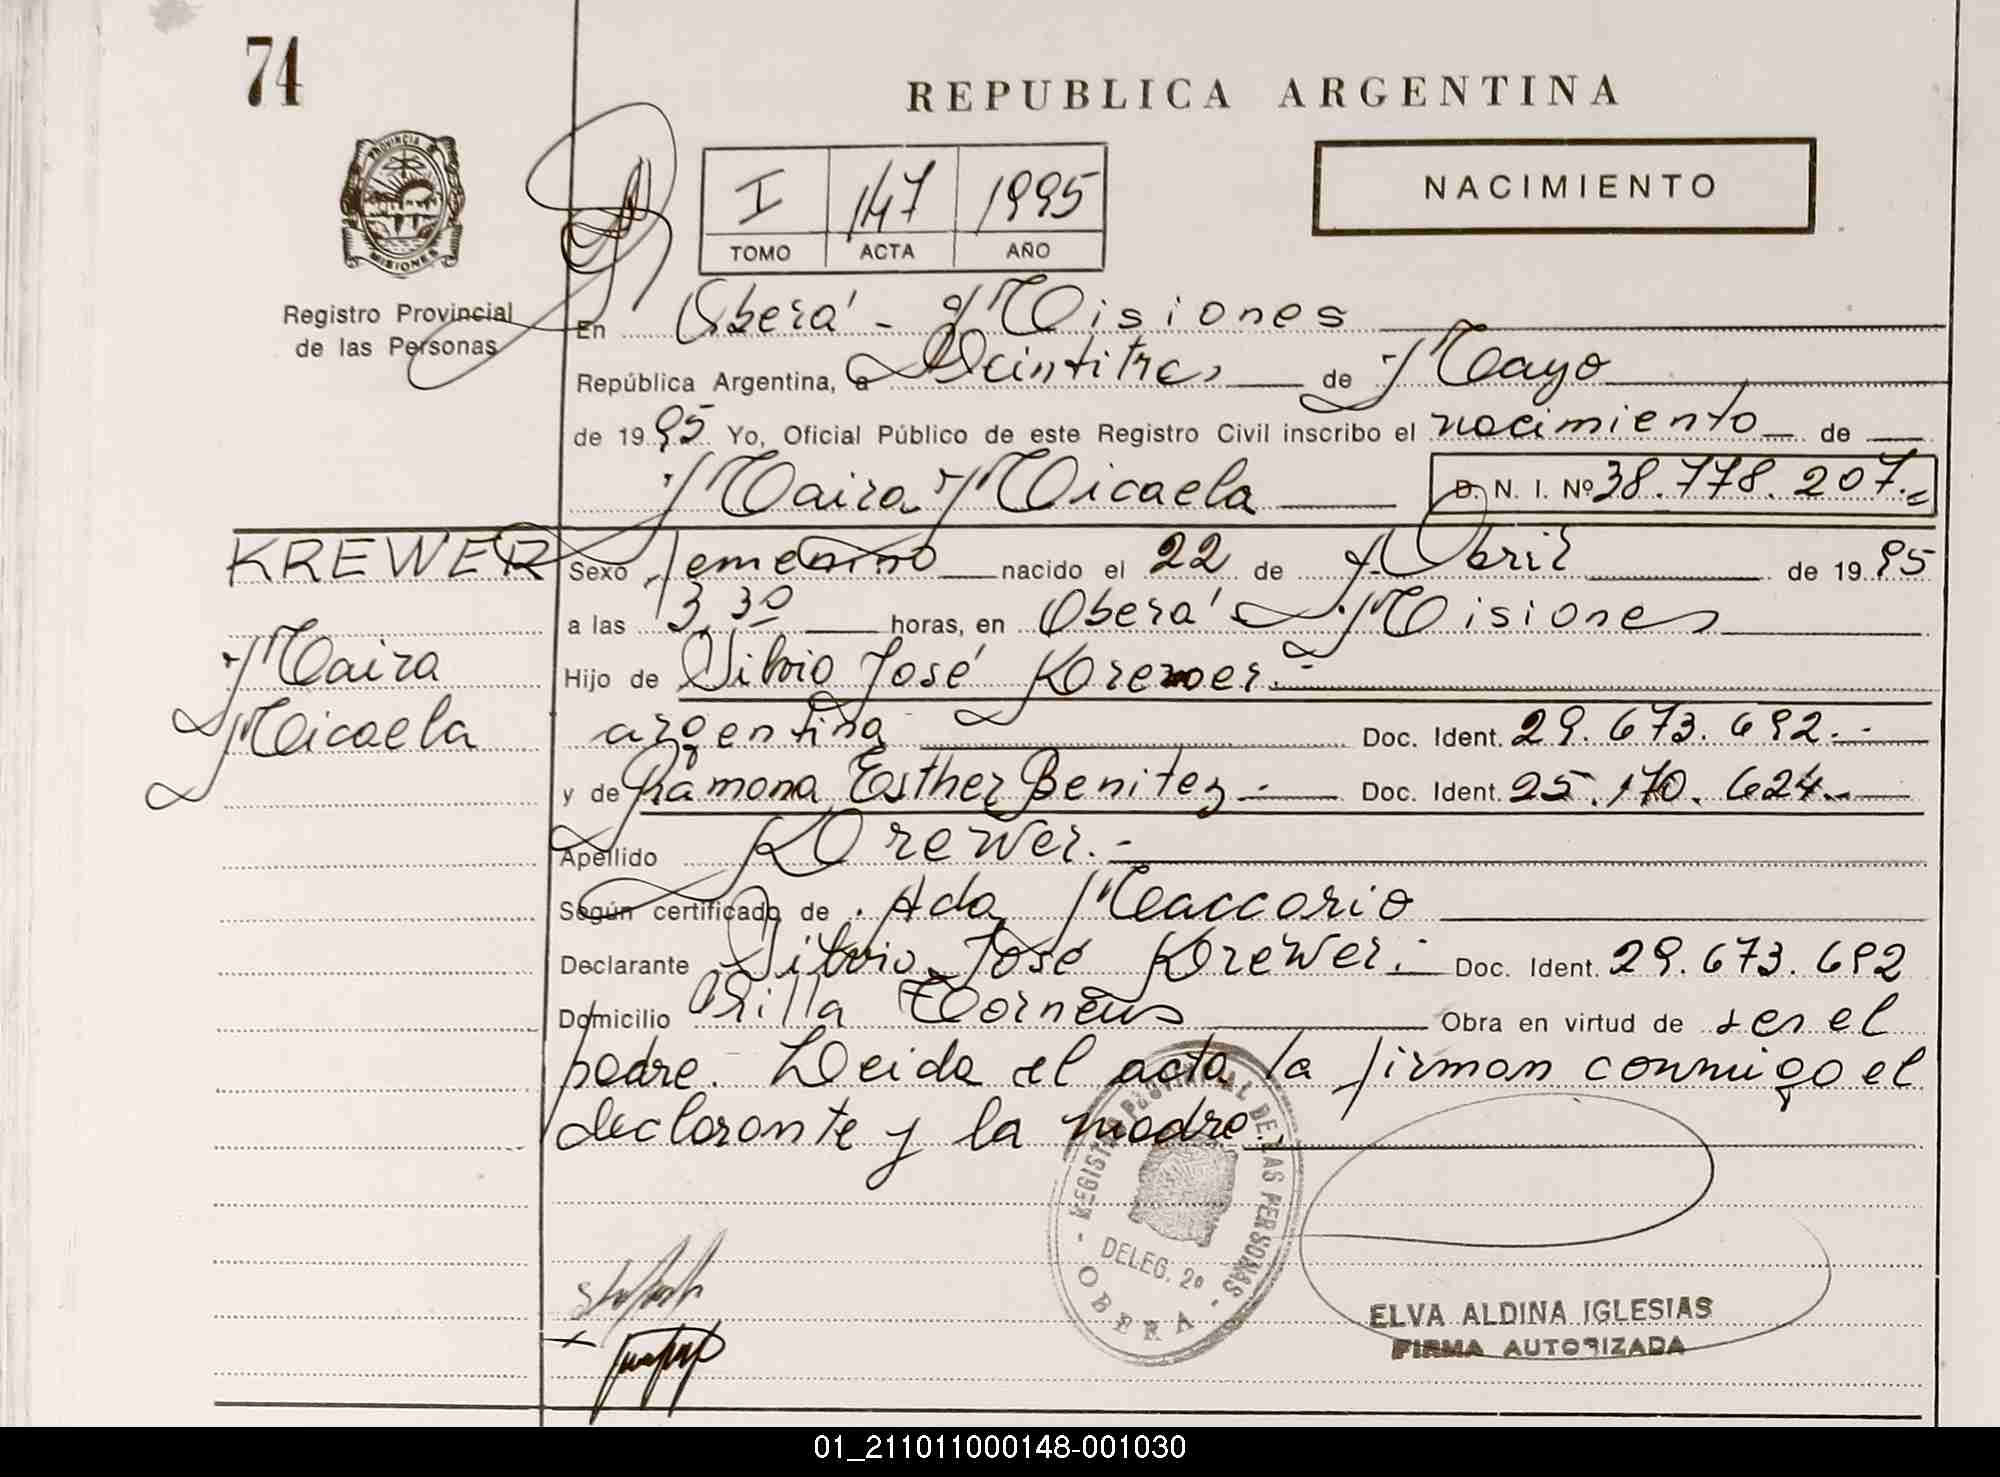 74
REPUBLICA ARGENTINA
PROVINCIA D
MISIONES
Registro Provincial
de las Personas
I 147 1995
TOMO ACTA AÑO
NACIMIENTO
En Oberá - Misiones
República Argentina, a Veintitres de Mayo
de 1995 Yo, Oficial Público de este Registro Civil inscribo el nacimiento de
Maira Micaela D. N. I. Nº 38.778.207.-
KREWER
Maira
Micaela
Sexo femenino nacido el 22 de Abril de 1995
a las 3,30 horas, en Oberá Misiones
Hijo de Silvio José Krewer.-
argentina Doc. Ident. 29.673.692.-
y de Ramona Esther Benitez.- Doc. Ident. 25.170.624.-
Apellido Krewer.-
Según certificado de Ada Maccorio
Declarante Silvio José Krewer.- Doc. Ident. 29.673.692
Domicilio Villa Obra en virtud de ser el
padre. Leida el acta la firman conmigo el
declarante y la madre.
REGISTRO PROVINCIAL DE LAS PERSONAS
DELEG. 2º
- OBERA -
ELVA ALDINA IGLESIAS
FIRMA AUTORIZADA
01_211011000148-001030